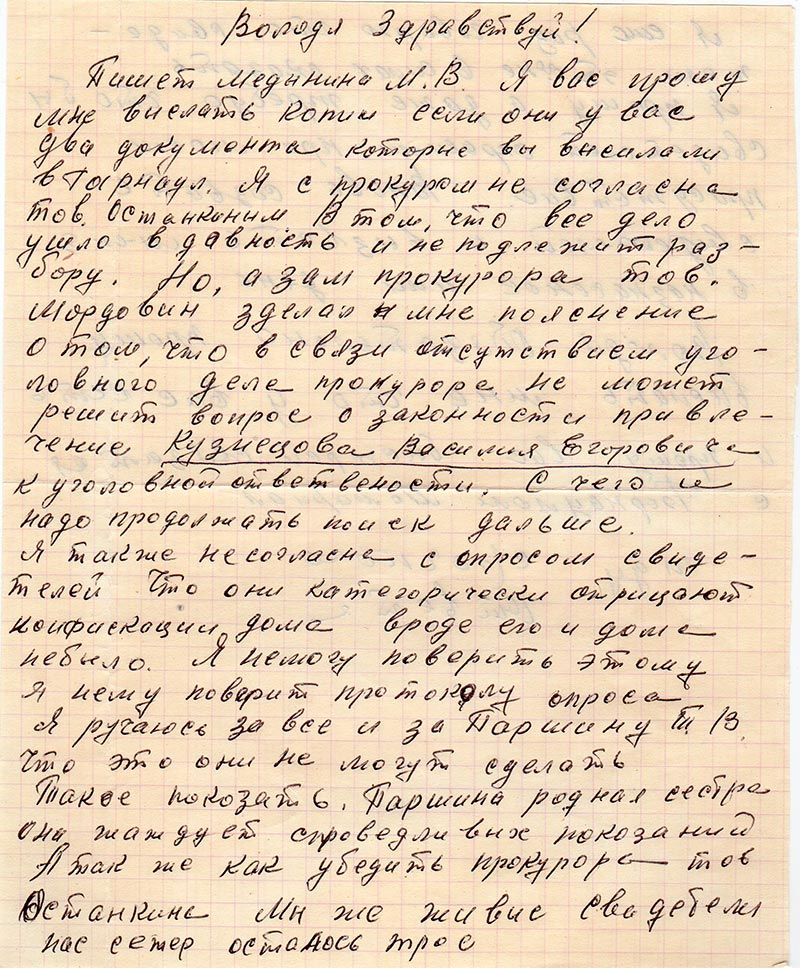 Володя Здравствуй!
Пишет Медынина М.В. Я вас прошу
мне выслать копии если они у вас
два документа которые вы высилали
в Тарнаул. Я с прокуром не согласна
тов. Останкиным В том, что все дело
ушло в давность и не подлежит раз-
бору. Но, а зам прокурора тов.
Мордовин зделал мне пояснение
о том, что в связи отсутствием уго-
ловного деле прокуроре не может
решит вопрос о законности привле-
чение Кузнецова Василия Егоровича
к уголовной ответвености. С чего и
надо продолжать поиск дальше.
Я также несогласна с опросом свиде-
телей Что они категорически отрицают
конфискации дома вроде его и дома
небыло. Я немогу поверить этому
Я нему поверит протоколу опроса
Я ручаюсь за все и за Паршину Т. В.
Что это они не могут сделать
Такое покозать. Паршина родная сестра
она жаждует справедливых покозаний
А так же как убедить прокурора тов
Останкина Мы же живые свидетели
нас сетер осталось трое